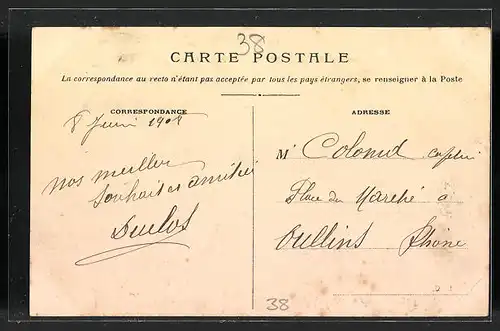 38
CARTE POSTALE
La correspondance au recto n'étant pas acceptée par tous les pays étrangers, se renseigner à la Poste
CORRESPONDANCE
8 Juin
nos meilleurs
souhaits et amitiés
Duclos
ADRESSE
Mr Colomb
Place du Marché a
Oullins Rhône
38